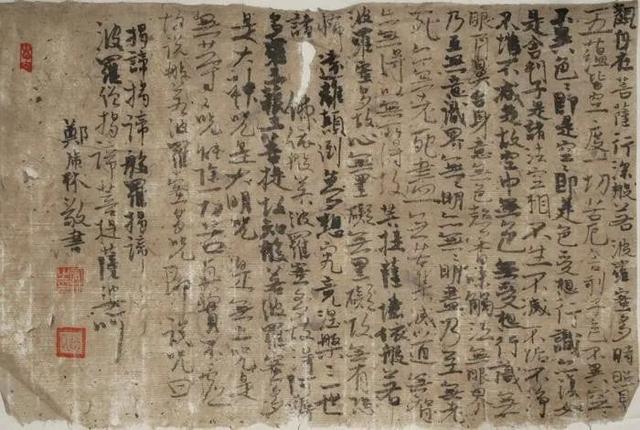 觀自在菩薩行深般若波羅蜜多時照見
五蘊皆空度一切苦厄舍利子色不異空空
不異色色即是空空即是色受想行識亦復如
是舍利子是諸法空相不生不滅不垢不淨
不增不減是故空中無色無受想行識無
眼耳鼻舌身意無色聲香味觸法無眼界
乃至無意識界無無明亦無無明盡乃至無老
死亦無老死盡無苦集滅道無智
亦無得以無所得故菩提薩埵依般若
波羅蜜多故心無罣礙無罣礙故無有恐
怖遠離顛倒夢想究竟涅槃三世
諸佛依般若波羅蜜多故得阿耨
多羅三藐三菩提故知般若波羅蜜多
是大神咒是大明咒是無上咒是
無等等咒能除一切苦真實不虛
故說般若波羅蜜多咒即說咒曰
揭諦揭諦般羅揭諦
波羅僧揭諦菩提薩婆訶
鄭康林敬書